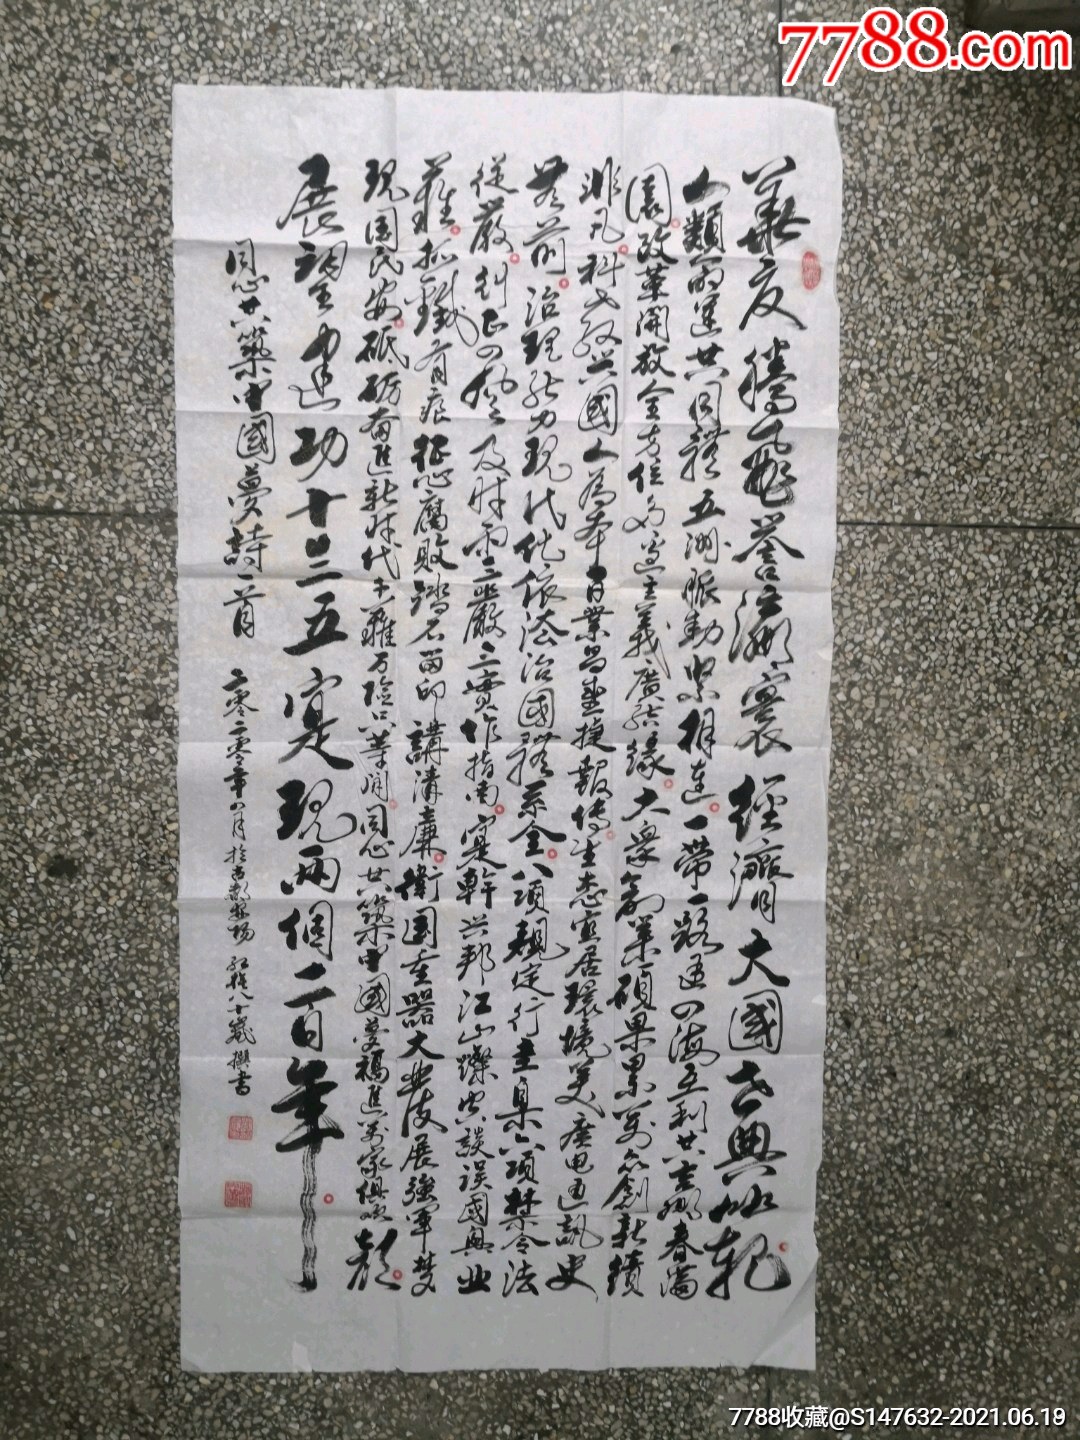 7788.com
華夏騰飛譽滿寰經濟大國世典帆
人類命運共同體五洲脈動緊相連一帶一路通四海互利共贏春滿
園改革開放全方位多邊主義廣結緣大眾創業碩果累萬众創新績
非凡科教兴國人為本百業昌盛捷報傳生态宜居環境美廣電通訊史
無前治理能力現代化依法治國體系全八項規定行圭臬六項禁令法
從嚴糾正四風及時雨三嚴三實作指南实幹兴邦江山燦空談误國興业
難抓鐵有痕征心腐败踏石留印講清廉衛國重器大典后展強軍梦
現国民安砥砺奋進新时代千難万险只等闲同心共築中國夢福進萬家俱欢颜
展望建功十三五实現兩個一百年
同心共築中國夢詩一首 二零二零年四月於古都 八十歲撰書
7788收藏@S147632-2021.06.19